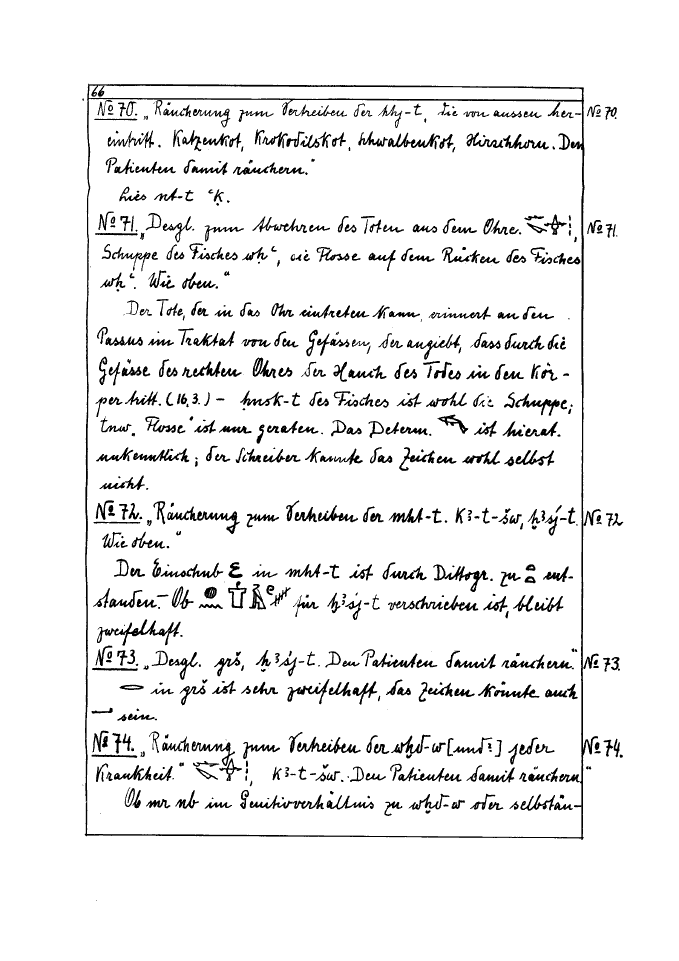 66
No 70. „Räucherung zum Vertreiben der hhj-t, die von aussen her- No 70.
eintritt. Katzenkot, Krokodilskot, Schwalbenkot, Hirschhorn. Den
Patienten damit räuchern."
Lies nt-t ꜥḳ.
No 71. „Desgl. zum Abwehren des Toten aus dem Ohre. No 71.
Schuppe des Fisches wḥꜥ, die Flosse auf dem Rücken des Fisches
wḥꜥ. Wie oben."
Der Tote, der in das Ohr eintreten kann, erinnert an den
Passus im Traktat von den Gefässen, der angiebt, dass durch die
Gefässe des rechten Ohres der Hauch des Todes in den Kör-
per tritt. (16,3.) – ḥnsk-t des Fisches ist wohl die Schuppe;
tnw „Flosse" ist nur geraten. Das Determ. ist hierat.
unkenntlich; der Schreiber kannte das Zeichen wohl selbst
nicht.
No 72. „Räucherung zum Vertreiben der mht-t. Kꜣ-t-šw, ḫꜣśj-t. No 72
Wie oben."
Der Einschub in mht-t ist durch Dittogr. zu ent-
standen. – Ob für ḫꜣśj-t verschrieben ist, bleibt
zweifelhaft.
No 73. „Desgl. grš, ḫꜣśj-t. Den Patienten damit räuchern." No 73.
in grš ist sehr zweifelhaft, das Zeichen könnte auch
sein.
No 74. „Räucherung zum Vertreiben der wḫd-w [und?] jeder No 74.
Krankheit." kꜣ-t-šw. Den Patienten damit räuchern."
Ob mr nb im Genitivverhältnis zu wḫd-w oder selbstän-